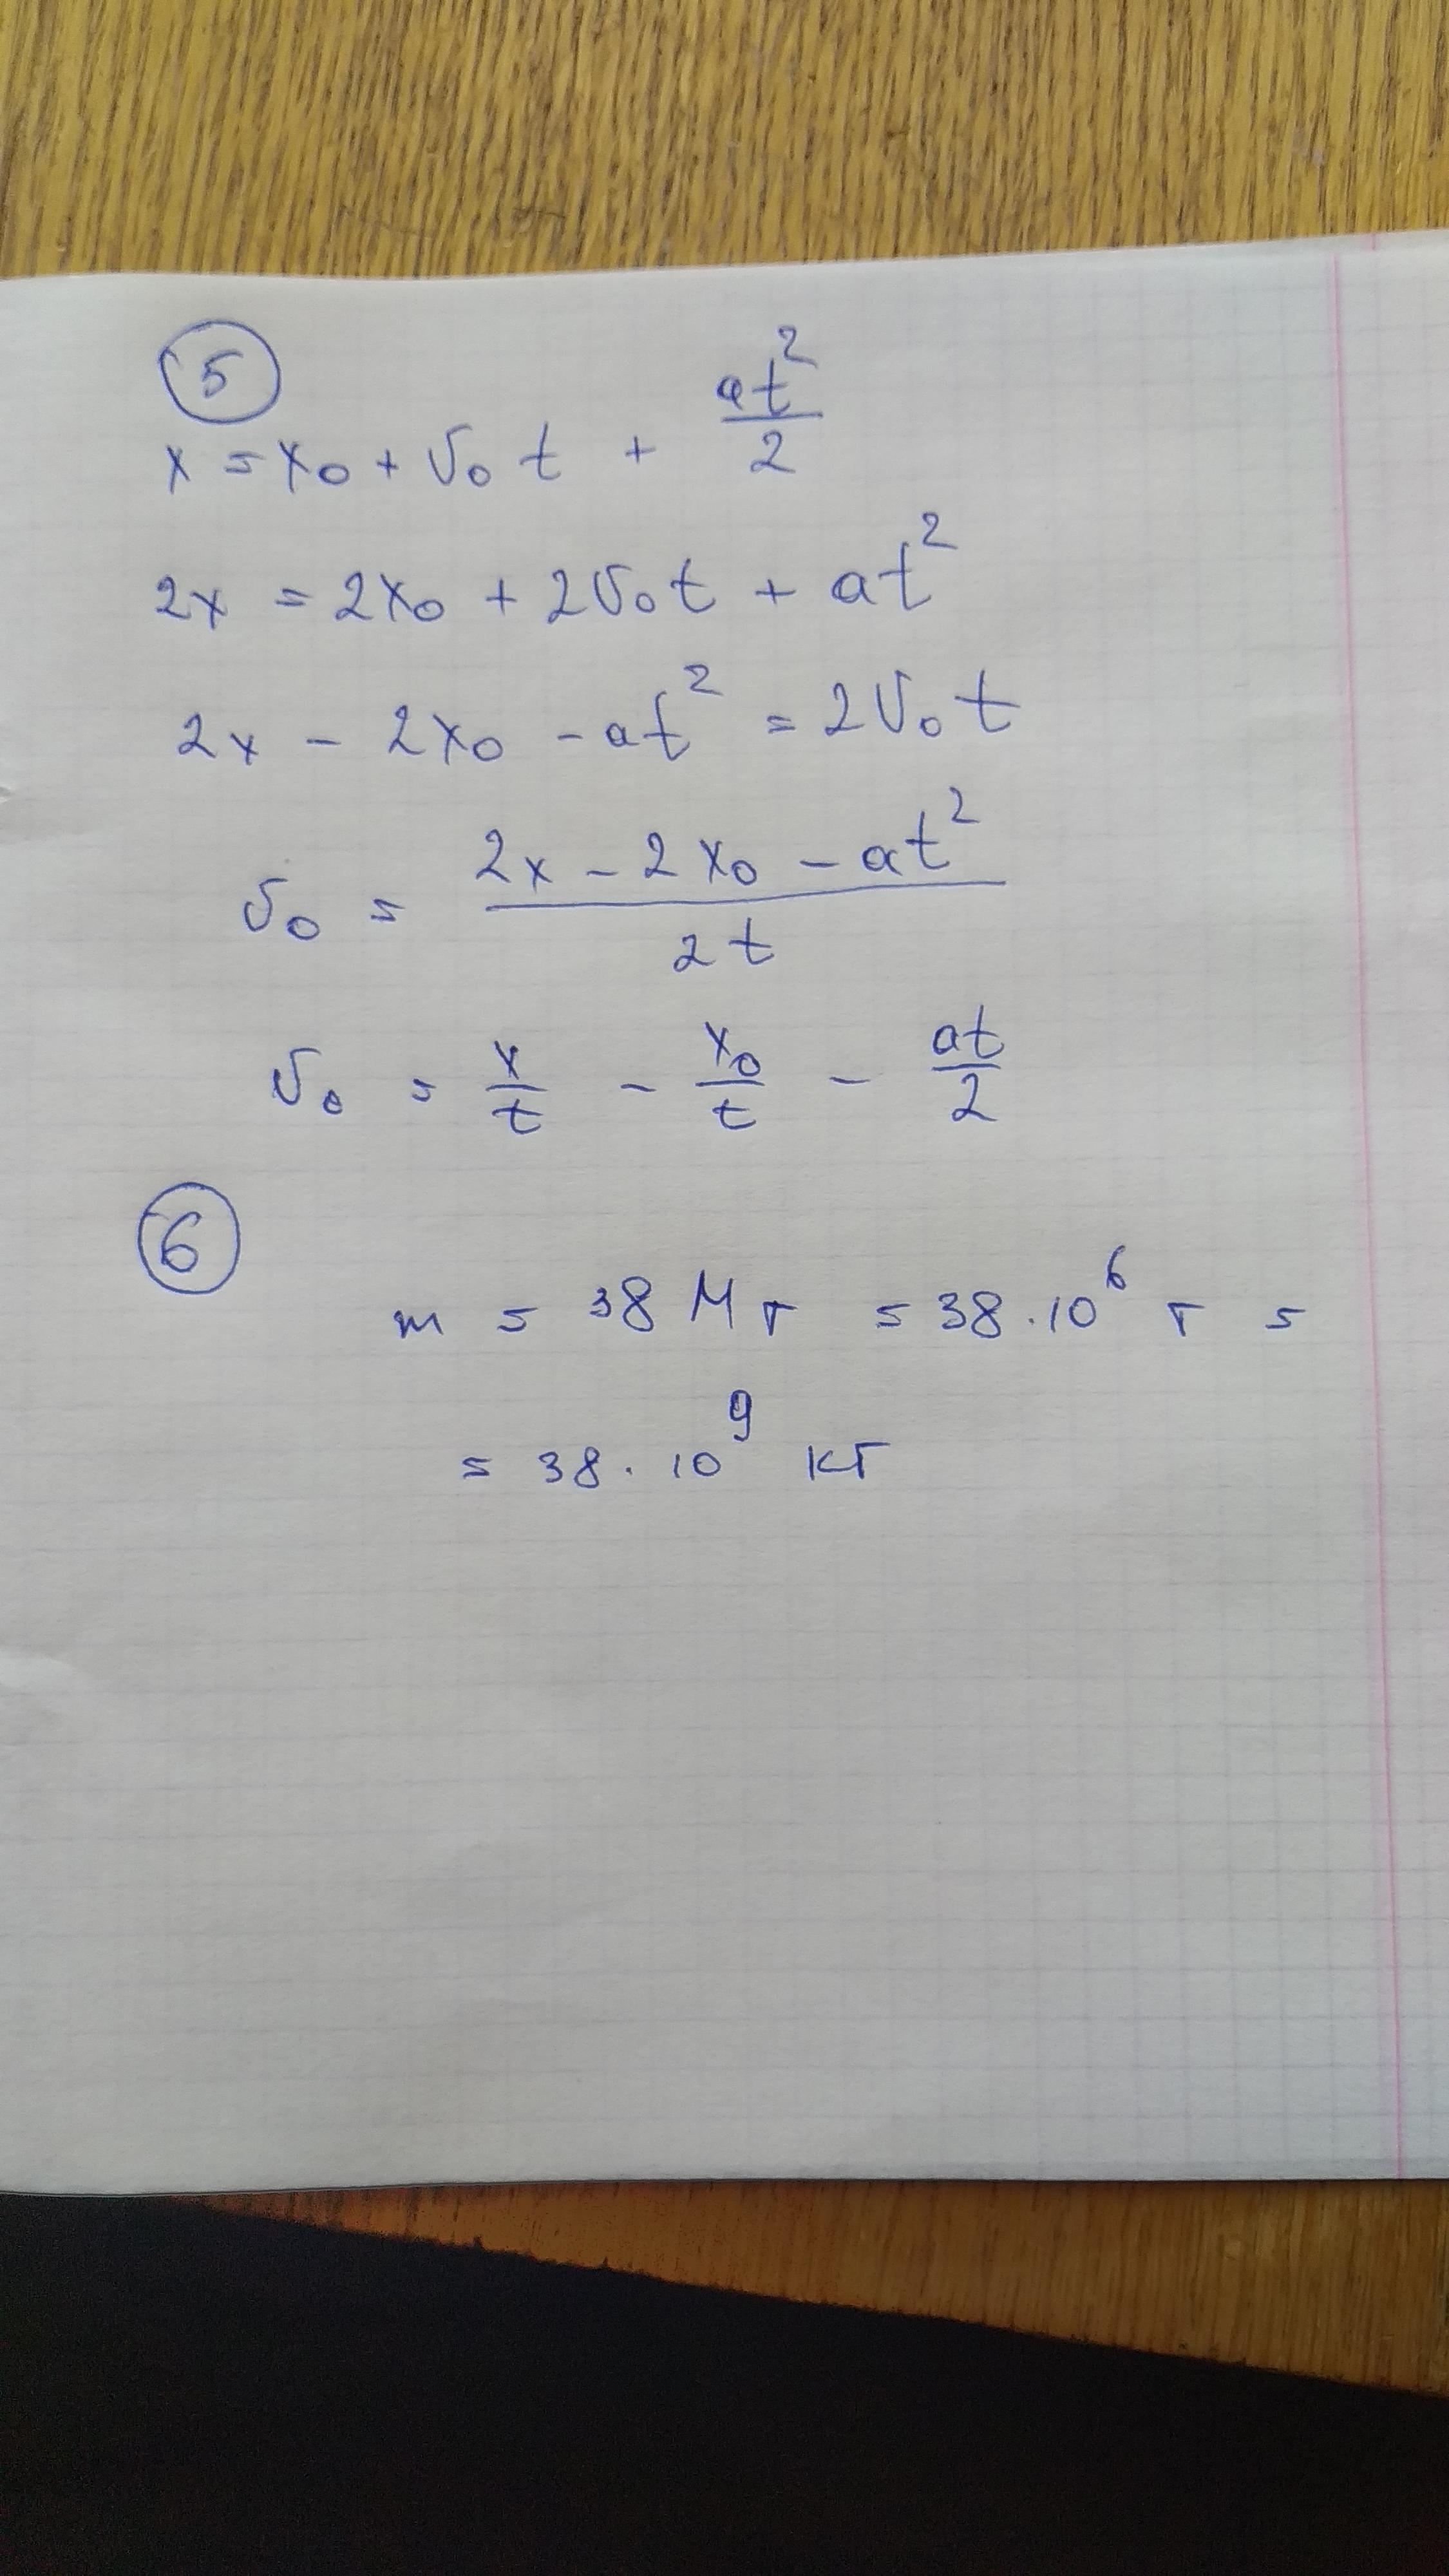 5
x = x₀ + v₀ t + at²/2
2x = 2x₀ + 2v₀t + at²
2x - 2x₀ - at² = 2v₀t
v₀ = (2x - 2x₀ - at²)/2t
v₀ = x/t - x₀/t - at/2
6
m = 38 Мт = 38 · 10⁶ т =
= 38 · 10⁹ кг